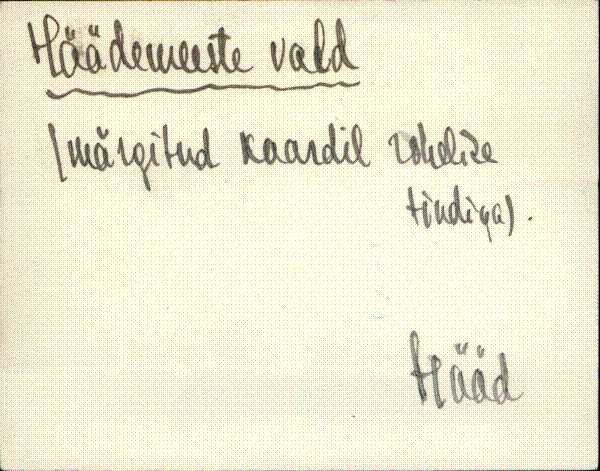 Häädemeeste vald
(märgitud kaardil rohelise
tindiga).
Hääd